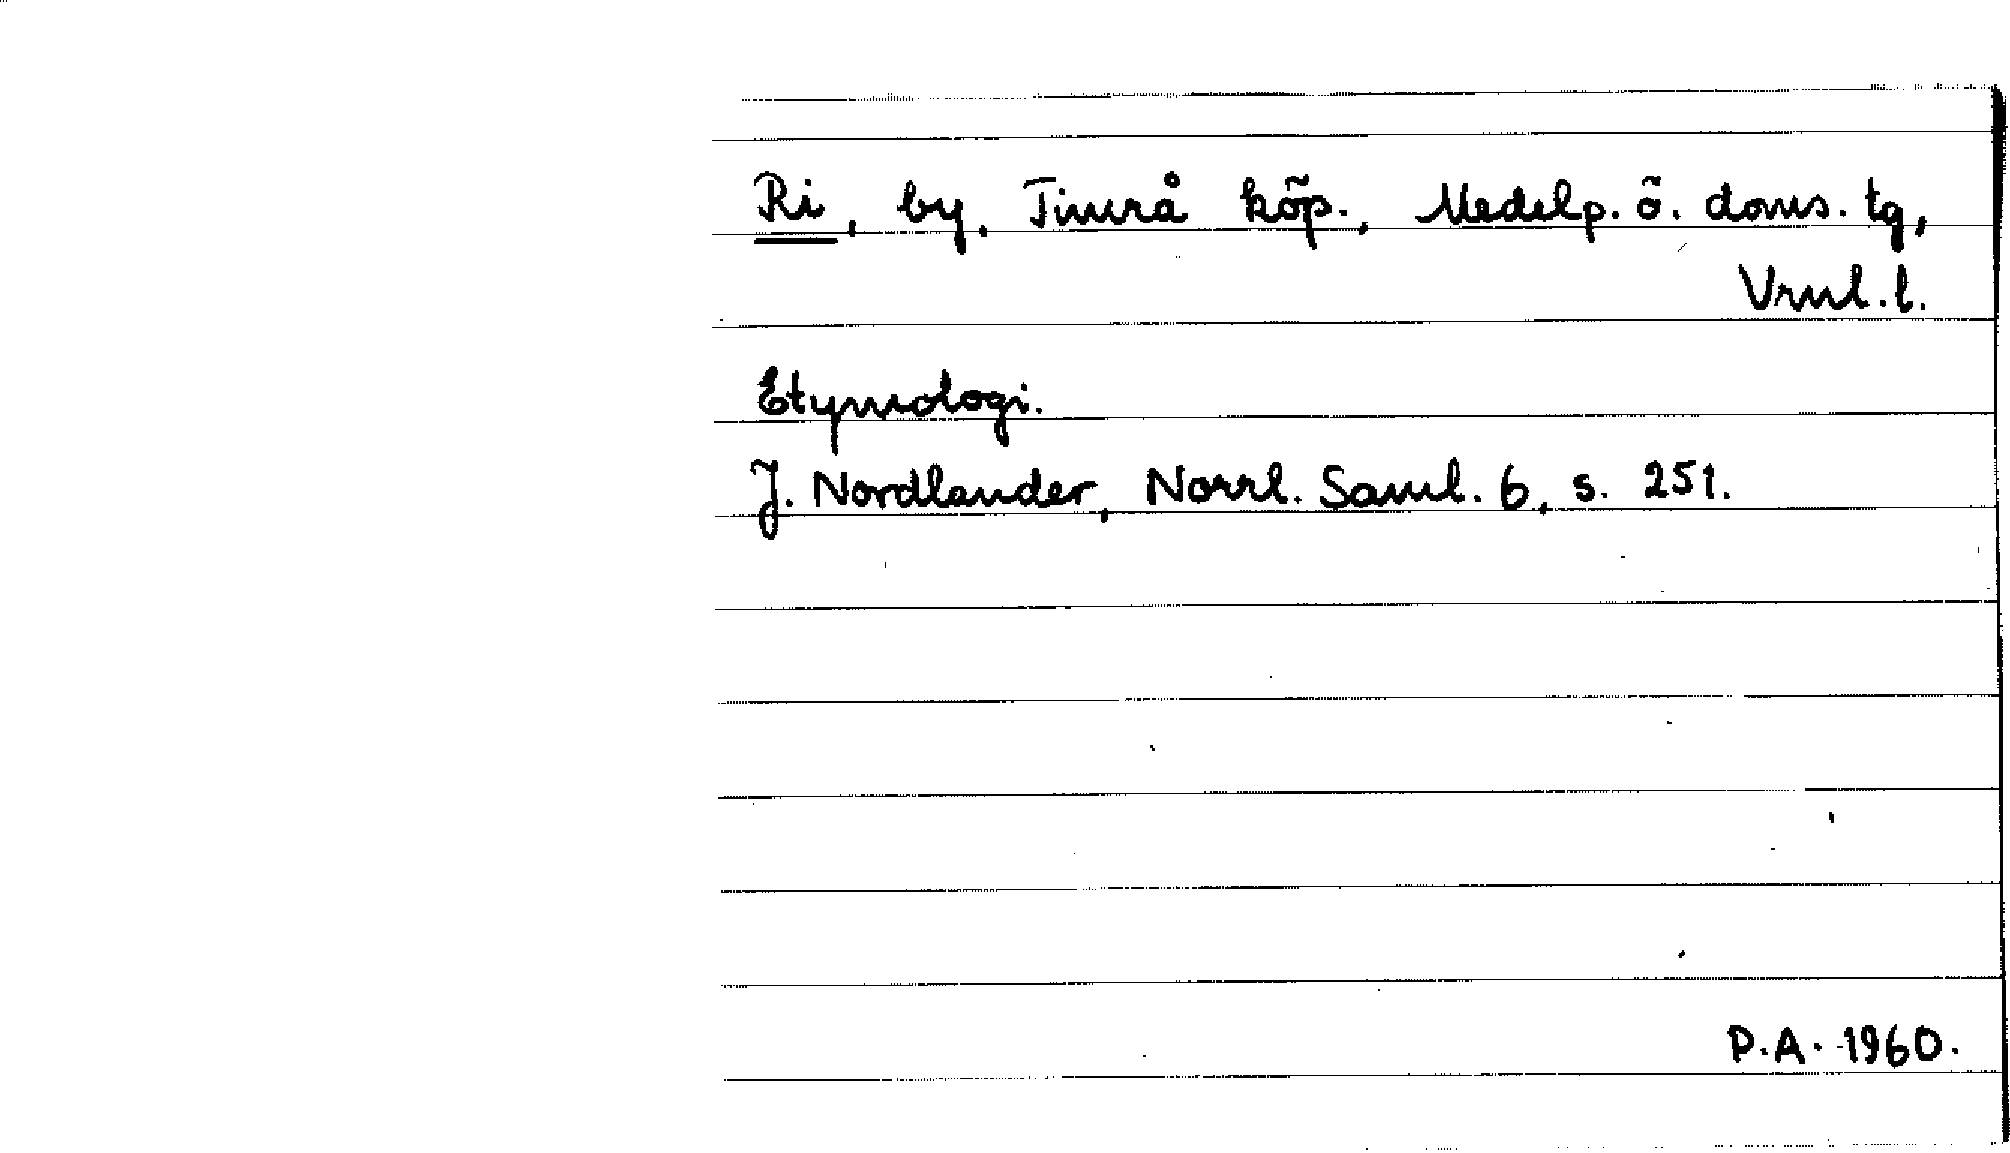 Ri, by, Timrå köp., Medelp. ö. doms. tg,
Vrnl. l.
Etymologi.
J. Nordlander, Norrl. Saml. 6, s. 251.
P.A. 1960.